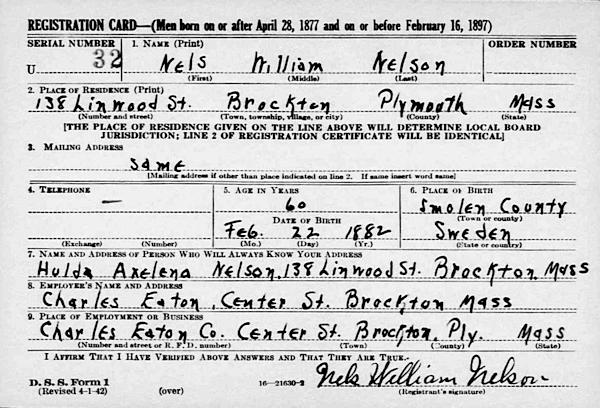 REGISTRATION CARD—(Men born on or after April 28, 1877 and on or before February 16, 1897)
SERIAL NUMBER 1. NAME (Print) ORDER NUMBER
U 32 Nels William Nelson
(First) (Middle) (Last)
2. PLACE OF RESIDENCE (Print)
138 Linwood St. Brockton Plymouth Mass
(Number and street) (Town, township, village, or city) (County) (State)
[THE PLACE OF RESIDENCE GIVEN ON THE LINE ABOVE WILL DETERMINE LOCAL BOARD
JURISDICTION; LINE 2 OF REGISTRATION CERTIFICATE WILL BE IDENTICAL]
3. MAILING ADDRESS
Same
[Mailing address if other than place indicated on line 2. If same insert word same]
4. TELEPHONE 5. AGE IN YEARS 6. PLACE OF BIRTH
— 60 Smolen County
DATE OF BIRTH (Town or county)
Feb. 22 1882 Sweden
(Exchange) (Number) (Mo.) (Day) (Yr.) (State or country)
7. NAME AND ADDRESS OF PERSON WHO WILL ALWAYS KNOW YOUR ADDRESS
Hulda Axelena Nelson, 138 Linwood St. Brockton Mass
8. EMPLOYER'S NAME AND ADDRESS
Charles Eaton, Center St. Brockton Mass
9. PLACE OF EMPLOYMENT OR BUSINESS
Charles Eaton Co. Center St. Brockton, Ply. Mass
(Number and street or R. F. D. number) (Town) (County) (State)
I AFFIRM THAT I HAVE VERIFIED ABOVE ANSWERS AND THAT THEY ARE TRUE.
D. S. S. Form 1
(Revised 4-1-42) (over) 16—21630-2 Nels William Nelson
(Registrant's signature)